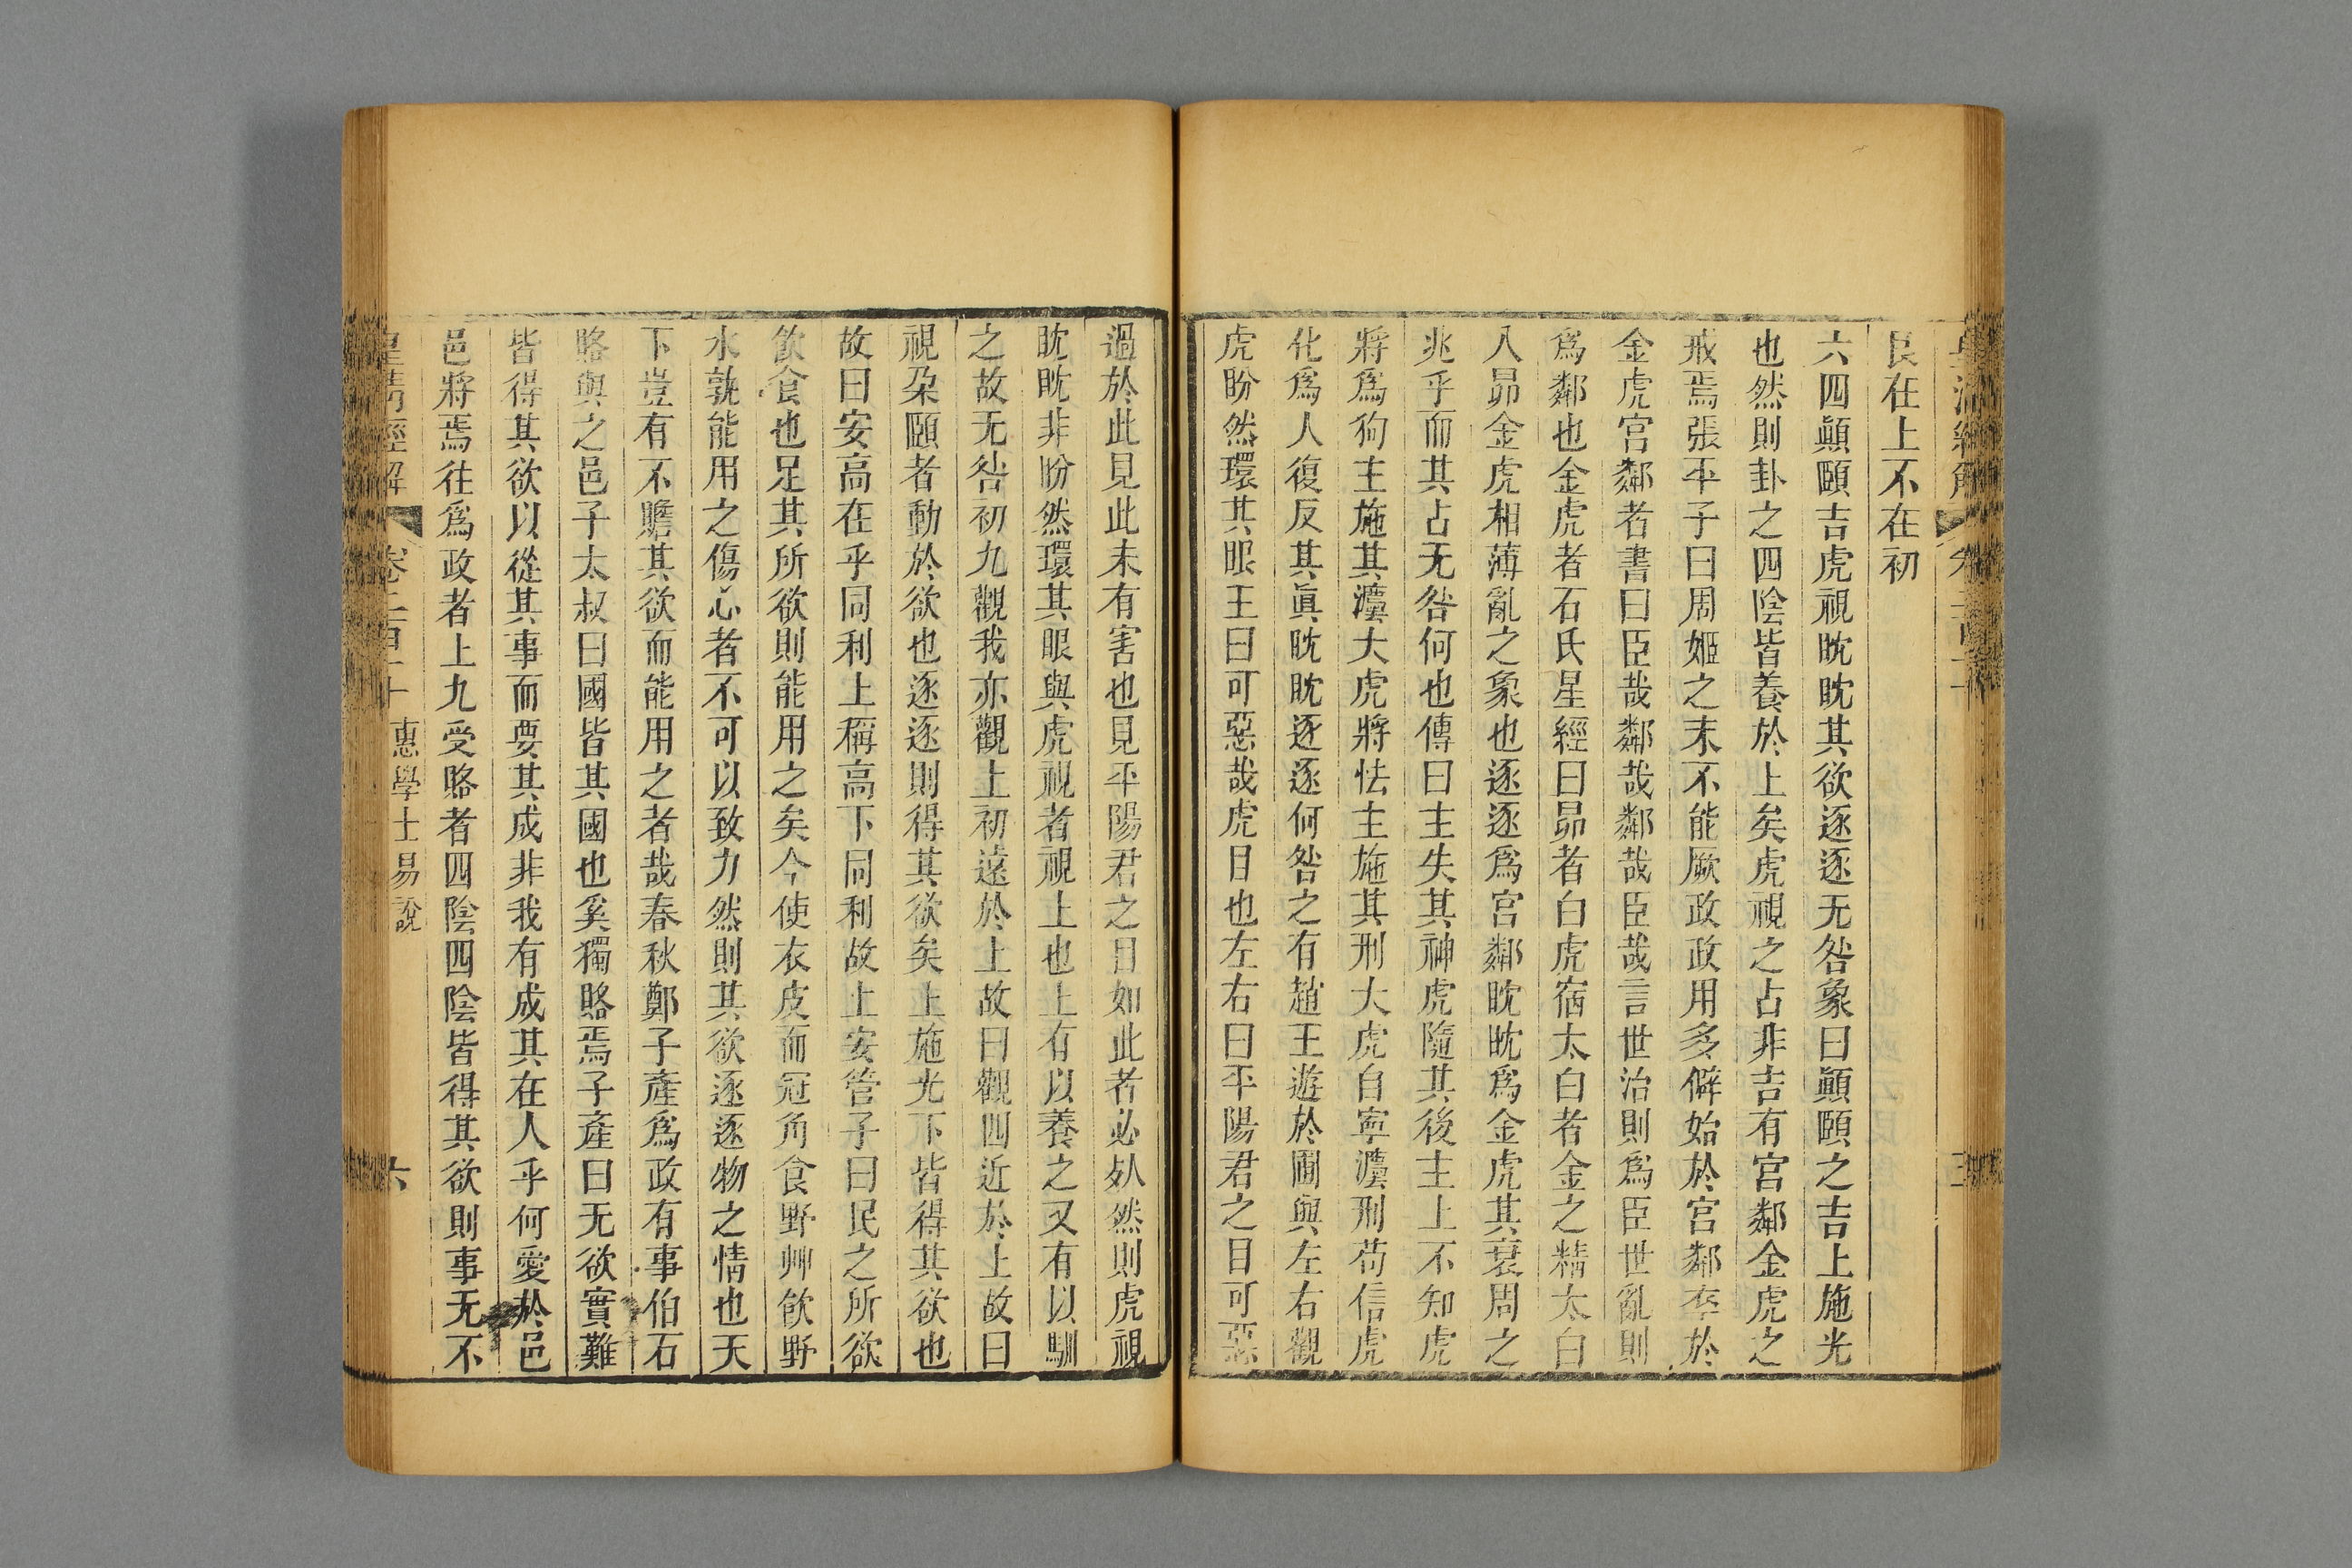 艮在上不在初
六四顚頤吉虎視眈眈其欲逐逐无咎象曰顚頤之吉上施光
也然則卦之四陰皆養於上矣虎視之占非吉有宮鄰金虎之
戒焉張平子曰周姬之末不能厥政政用多僻始於宮鄰卒於
金虎宮鄰者書曰臣哉鄰哉鄰哉臣哉言世治則爲臣世亂則
爲鄰也金虎者石氏星經曰昴者白虎宿太白者金之精太白
入昴金虎相薄亂之象也逐逐爲宮鄰眈眈爲金虎其衰周之
兆乎而其占无咎何也傳曰主失其神虎隨其後主上不知虎
將爲狗主施其灋大虎將怯主施其刑大虎自寧灋刑苟信虎
化爲人復反其眞眈眈逐逐何咎之有趙王遊於圃與左右觀
虎盼然環其眼王曰可惡哉虎目也左右曰平陽君之目可惡
過於此見此未有害也見平陽君之目如此者必㱙然則虎視
眈眈非盼然環其眼與虎視者視上也上有以養之又有以馴
之故无咎初九觀我亦觀上初遠於上故曰觀四近於上故曰
視朶頤者動於欲也逐逐則得其欲矣上施光下皆得其欲也
故曰安高在乎同利上稱高下同利故上安管子曰民之所欲
飲食也足其所欲則能用之矣今使衣皮而冠角食野艸飮野
水孰能用之傷心者不可以致力然則其欲逐逐物之情也天
下豈有不贍其欲而能用之者哉春秋鄭子產爲政有事伯石
賂與之邑子太叔曰國皆其國也奚獨賂焉子產曰无欲實難
皆得其欲以從其事而要其成非我有成其在人乎何愛於邑
邑將焉往爲政者上九受賂者四陰四陰皆得其欲則事无不
皇淸經解 卷二百十 惠學士易說 六